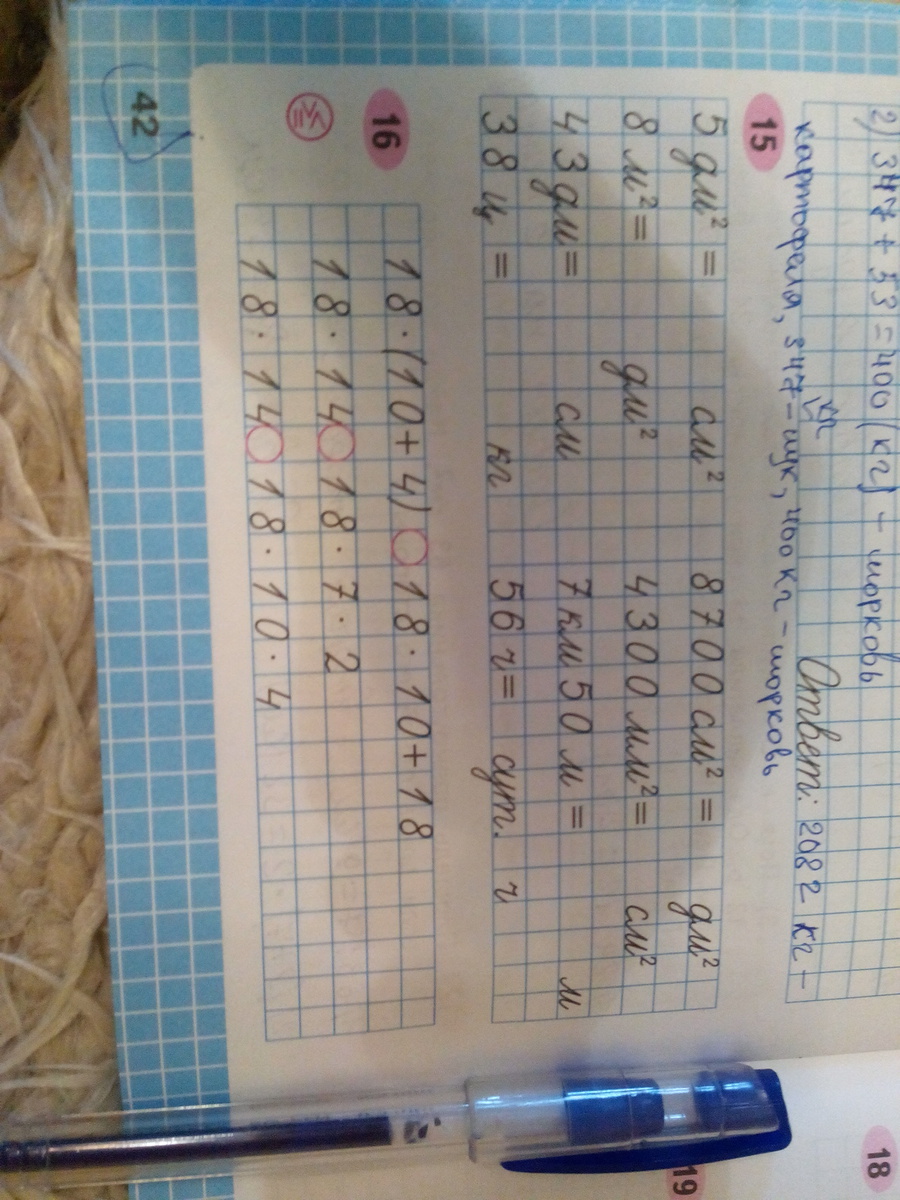 2) 347 + 53 = 400 (кг) – морковь
Ответ: 2082 кг –
картофеля, 347 – лук, 400 кг – морковь
кг
15
5 дм² = см² 8700 см² = дм²
8 м² = дм² 4300 мм² = см²
43 дм = см 7 км 50 м = м
38 ц = кг 56 ч = сут. ч
16
18 · (10 + 4) ○ 18 · 10 + 18
18 · 14 ○ 18 · 7 · 2
18 · 14 ○ 18 · 10 · 4
42
18
19